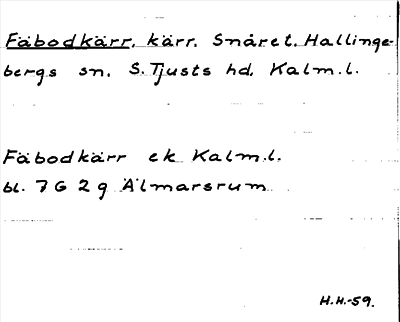 Fäbodkärr, kärr. Snåret. Hallinge-
bergs sn. S. Tjusts hd. Kalm.l.
Fäbodkärr ek Kalm.l.
bl. 7 G 2 g Älmarsrum
H.H.-59.